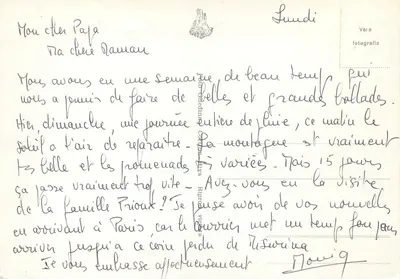 Lundi
Mon cher Papa
Ma chère Maman
Vera
fotografia
Nous avons eu une semaine de beau temps, qui
nous a permis de faire de belles et grandes ballades.
Hier, dimanche, une journée entière de pluie, ce matin le
soleil a l'air de reparaitre - La montagne est vraiment
très belle et les promenades variées - Mais 15 jours
ça passe vraiment trop vite - Avez-vous eu la visite
de la famille Prioux? Je pense avoir de vos nouvelles
en arrivant à Paris, car le courrier met un temps fou pour
arriver jusqu'à ce coin perdu de Misurina
Je vous embrasse affectueusement